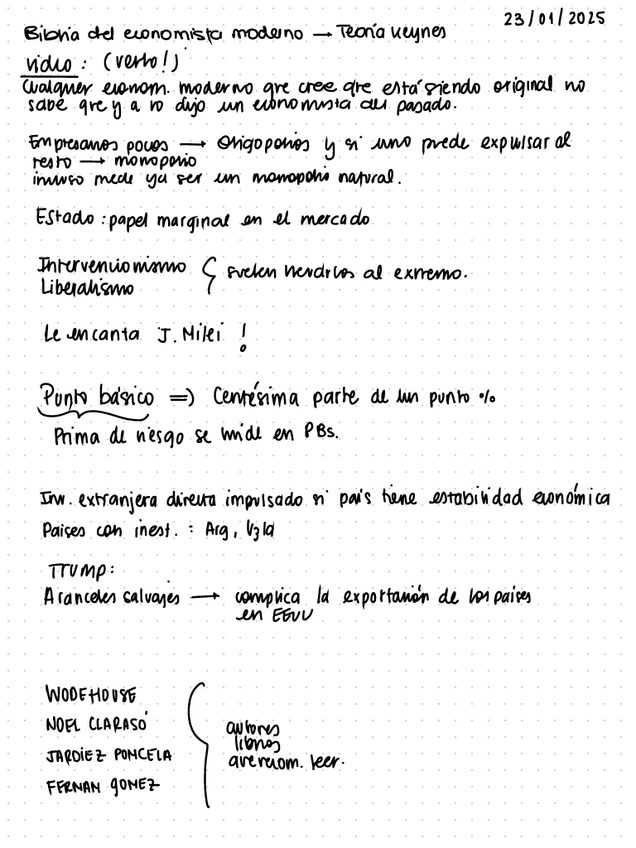 23/01/2025
Biblia del economista moderno → Teoría Keynes
video : (verlo!)
Cualquier econom. moderno que cree que está siendo original no
sabe que ya lo dijo un economista del pasado.
Empresarios pocos → Oligopolios y si uno puede expulsar al
resto → monopolio
incluso puede ya ser un monopolio natural.
Estado : papel marginal en el mercado
Intervencionismo
Liberalismo
suelen venderlos al extremo.
Le encanta J. Milei !
Punto básico => Centésima parte de un punto %
Prima de riesgo se mide en PBs.
Inv. extranjera directa impulsado si país tiene estabilidad económica
Paises con inest. : Arg, Vzla
TTUMP:
Aranceles salvajes → complica la exportación de los países
en EEUU
WODEHOUSE
NOEL CLARASÓ
JARDIEZ PONCELA
FERNAN GOMEZ
autores
libros
que recom. leer.